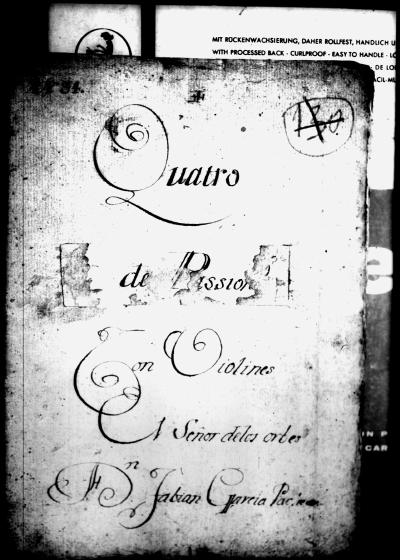 MIT ROCKENWACHSIERUNG, DAHER ROLLFEST, HANDLICH U
WITH PROCESSED BACK · CURLPROOF - EASY TO HANDLE · LO
DE LO
ACIL-MU
130
Quatro
de Passion
Con Violines
Al Señor de los orbes
Dn. Fabian Garcia Pac
e
IN P
CAR